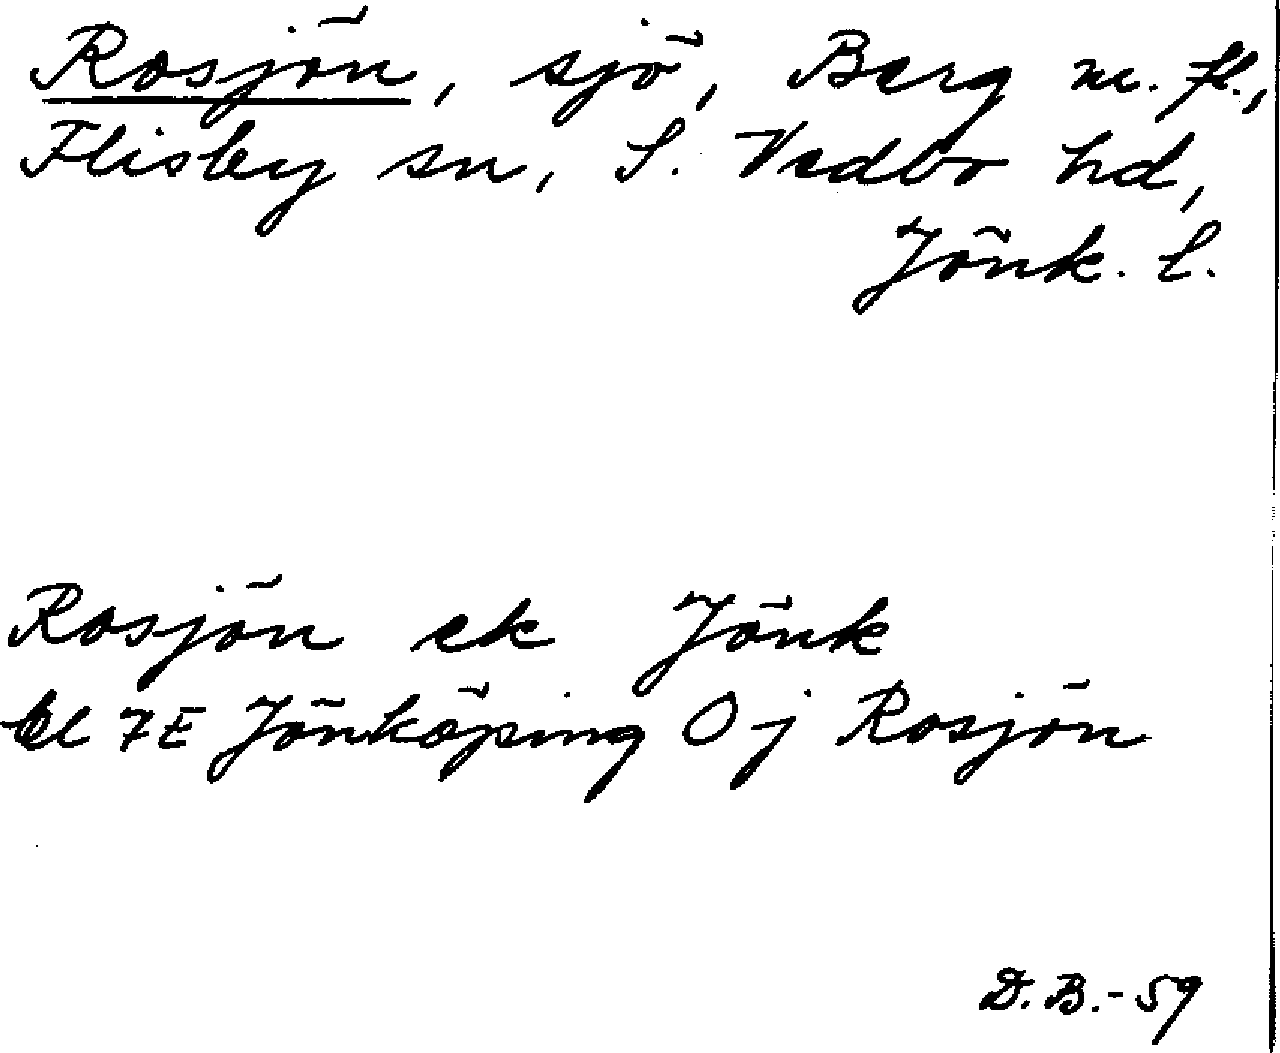 Rosjön, sjö, Berg m. fl.,
Flisby sn, S. Vedbo hd,
Jönk. l.
Rosjön ek Jönk
bl 7E Jönköping Oj Rosjön
D.B.-59